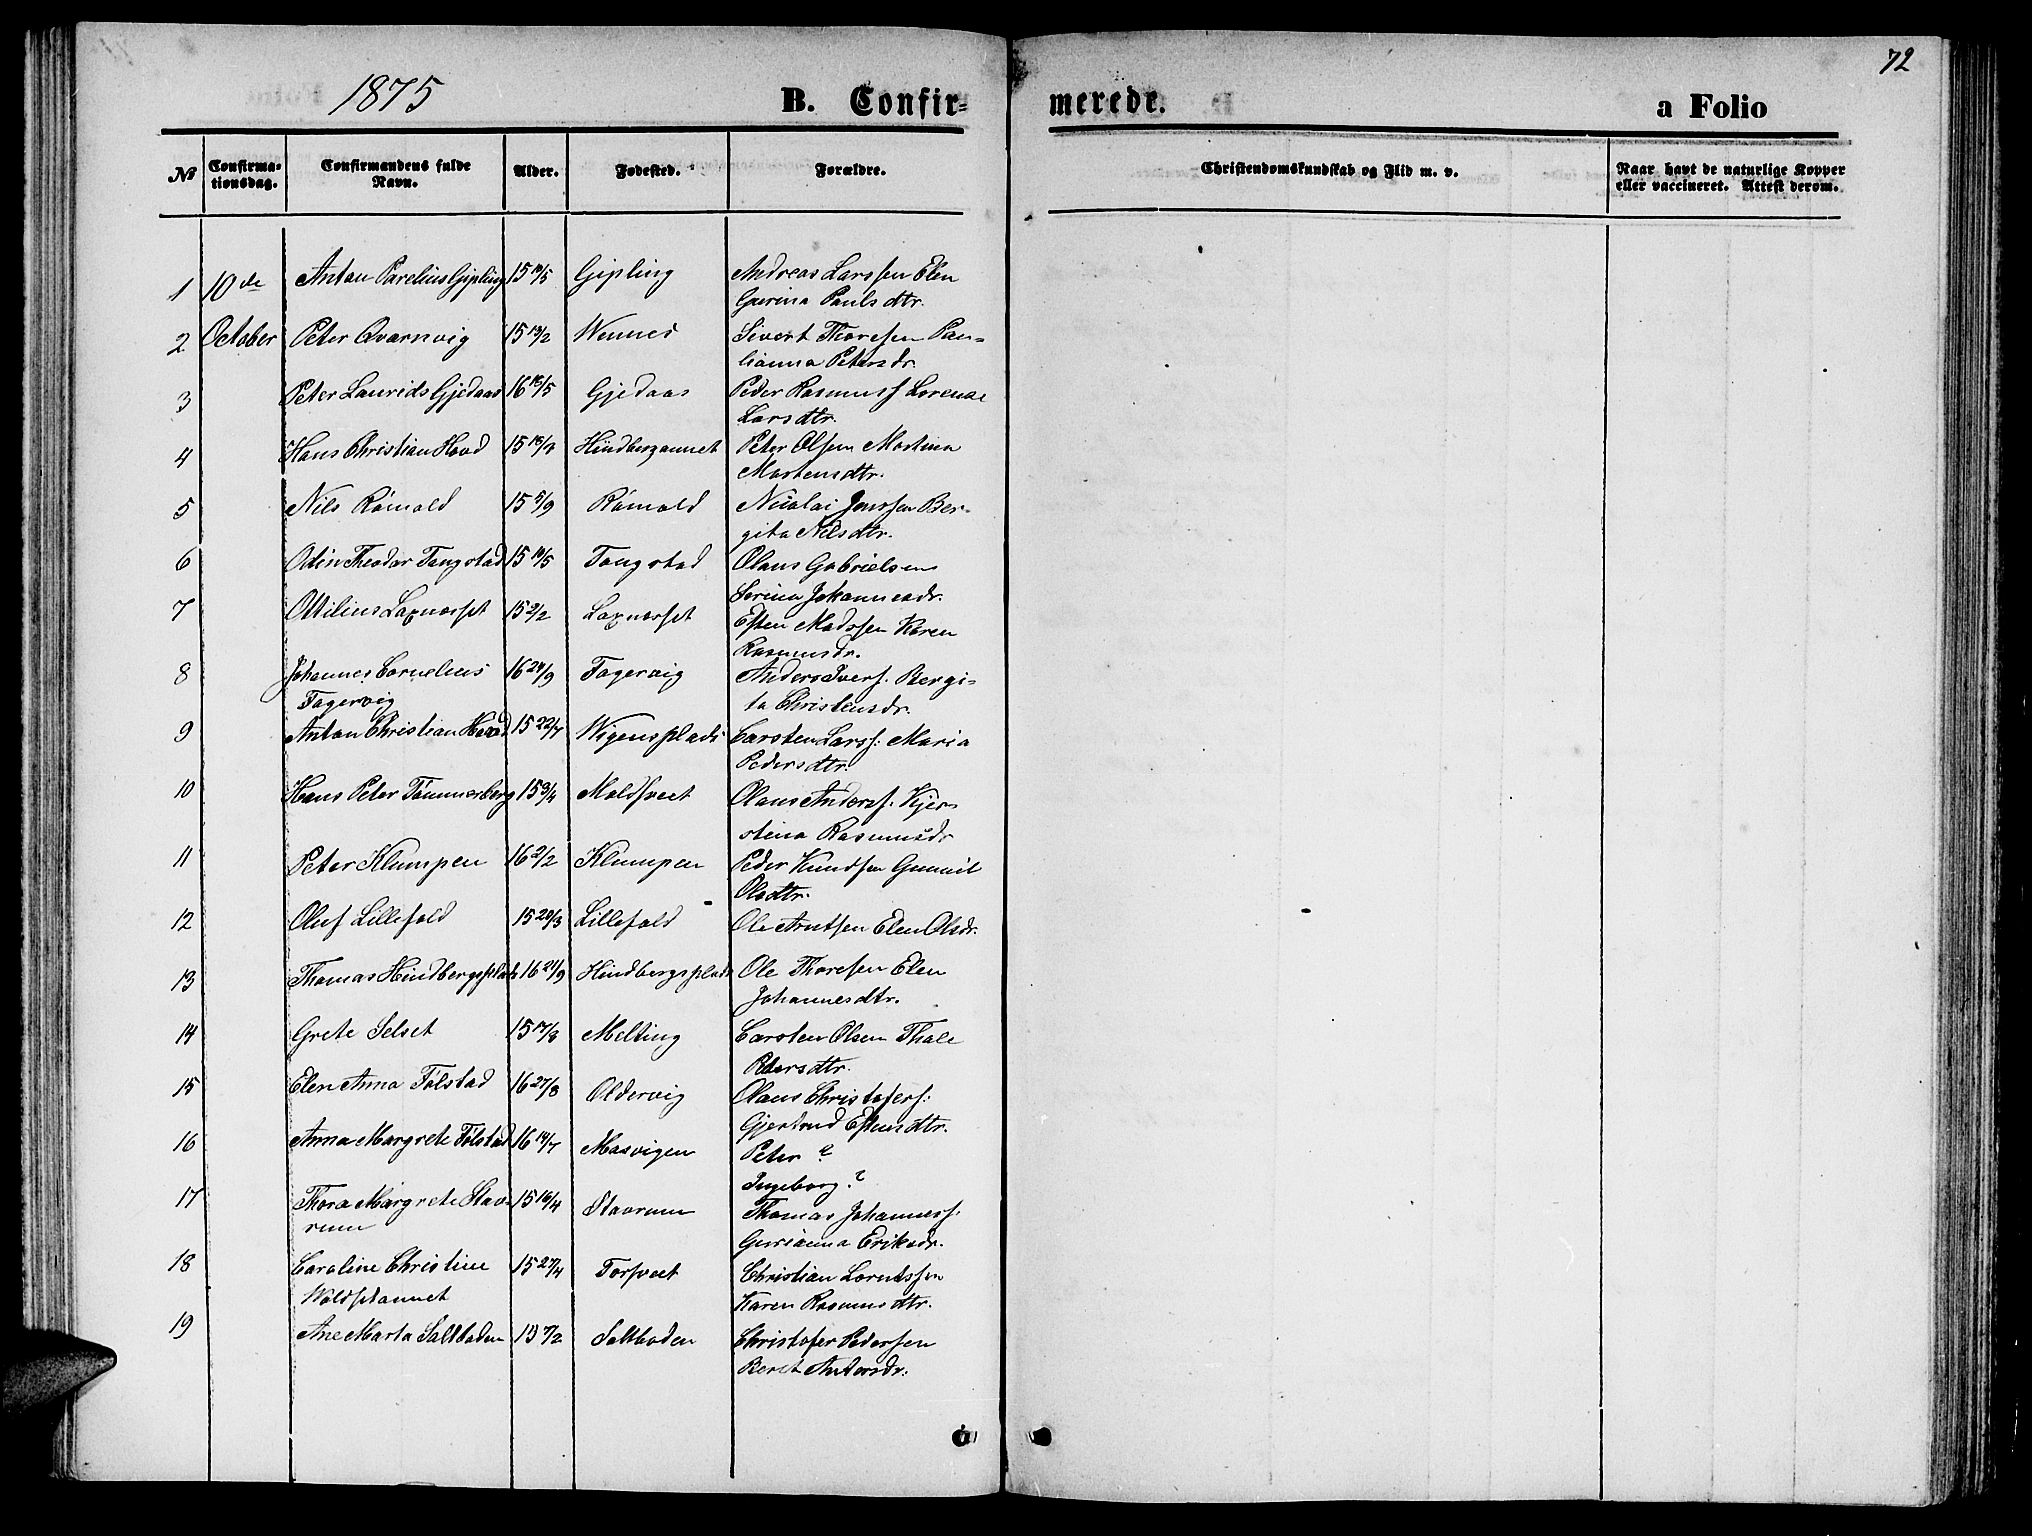 72
1875 B. Confir= meredr. a Folio
No Confirma=tionsdag. Confirmandens fulde Navn. Alder. Fødested. Forældre. Christendomskundskab og Flid m. v. Naar havt de naturlige Kopper eller vaccineret. Attest derom.
1 10de Anton Parelius Gipling 15 Gipling Andreas Larssen Elen
Gurina Pauls dtr.
2 October Peter Qvarnvig 15 13/2 Wennes Sivert Thoresen Pau=
lianna Petersdr.
3 Peter Laurids Gjedaas 16 Gjedaas Peder Rasmuss Lorense
Lars dtr.
4 Hans Christian Hood 15 Peter Olsen Martina
Martensdtr.
5 Nils Römold 15 5/9 Römold Nicolai Jonssen Ber=
gita Nilsdtr.
6 Odin Theodor Tangstad 15 Tangstad Olaus Gabrielsen
Serina Johannesdr.
7 Ottilius Laxnæsset 15 2/2 Laxnæsset Esten Madssen Karen
Rasmusdr.
8 Johannes Cornelius 16 24/9 Fagervig Anders Ivers. Bergi=
Fagervig ta Christensdr.
9 Anton Christian Hood 15 22/7 Wigensplads Carsten Larss: Maria
Pedersdtr.
10 Hans Peter Tömmerberg 15 3/4 Moldtveet Olaus Anderss. Kjer
stina Rasmusdr
11 Peter Klumpen 16 2/2 Klumpen Peder Knudsen Gunnil
Olsdtr.
12 Oluf Lillefald 15 20/3 Lillefald Ole Arntsen Elen Olsdr.
13 Thomas Hindbergsplads 16 21/9 Hindbergsplads Ole Thoresen Elen
Johannesdtr.
14 Grete Selset 15 17/8 Melting Carsten Olsen Thale
Petersdtr.
15 Elen Anna Fölstad 16 27/8 Oldervig Olaus Christofers:
Gjertrud Estensdtr.
16 Anna Margrete Fölstad 16 14/7 Masvigen Peter ?
Ingeborg ?
17 Thora Margrete Stav= 15 16/4 Stavrum Thomas Johanness:
rum Gurianna Eriksdr.
18 Caroline Christine 15 27/4 Torsveet Christian Lorntssen
Woldstannet Karen Rasmusdtr.
19 Ane Marta Saltboden 15 7/2 Saltboden Christofer Pedersen
Beret Andersdr: